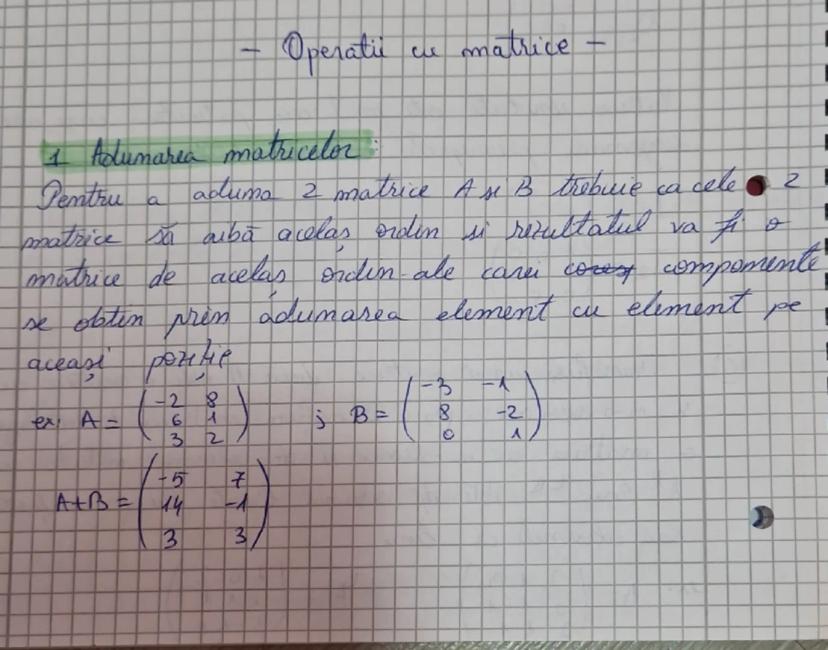 - Operatii cu matrice -
1 Adumarea matricelor:
Pentru a aduma 2 matrice A si B trebuie ca cele 2
matrice să aibă acelaș ordin si rezultatul va fi o
matrice de acelaș ordin ale carei componente
se obtin prin adumarea element cu element pe
aceași poziție
ex: A = (-2 8 ; B = (-3 -1
6 1 8 -2
3 2) 0 1)
A+B = (-5 7
14 -1
3 3)